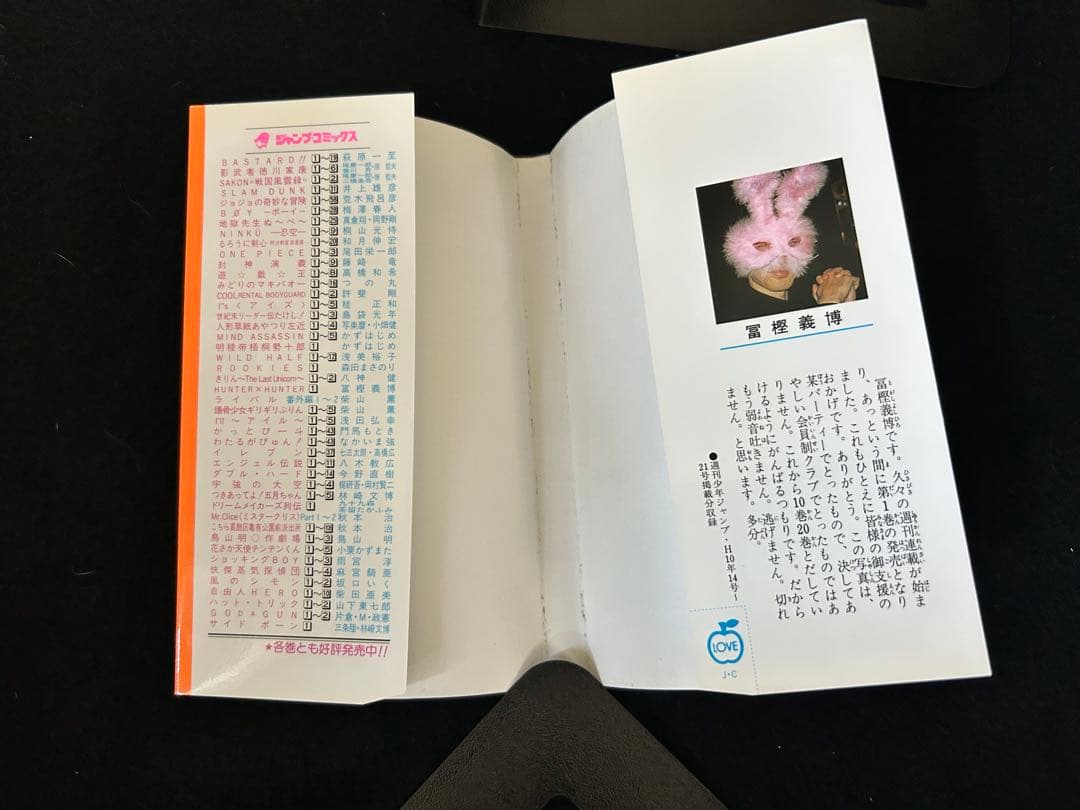 ジャンプ・コミックス
BASTARD!! 萩原一至
影武者徳川家康
SAKON-戦国風雲録-
SLAM DUNK 井上雄彦
ジョジョの奇妙な冒険 荒木飛呂彦
BØY -ボーイ- 梅澤春人
地獄先生ぬ〜べ〜 真倉翔・岡野剛
NINKŪ -忍空- 桐山光侍
るろうに剣心 和月伸宏
ONE PIECE 尾田栄一郎
封神演義 藤崎竜
遊☆戯☆王 高橋和希
みどりのマキバオー つの丸
COOL RENTAL BODYGUARD 許斐剛
I"s〈アイズ〉 桂正和
世紀末リーダー伝たけし! 島袋光年
人形草紙あやつり左近 写楽麿・小畑健
MIND ASSASSIN かずはじめ
明稜帝梧桐勢十郎 1 かずはじめ
WILD HALF 浅美裕子
ROOKIES 1 森田まさのり
きりん〜The Last Unicorn〜 1〜2 八神健
HUNTER×HUNTER 1 冨樫義博
ライバル 番外編1〜2 柴山薫
爆骨少女ギリギリぷりん 柴山薫
I'll 〜アイル〜 浅田弘幸
かっとび一斗 門馬もとき
わたるがぴゅん! なかいま強
イレブン 七三太朗・高橋広
エンジェル伝説 八木教広
ダブル・ハード 今野直樹
宇強の大空 梶研吾・岡村賢二
つきあってよ!五月ちゃん 林崎文博
ドリームメイカーズ列伝 1
Mr.Clice(ミスタークリス) Part1〜2 秋本治
こちら葛飾区亀有公園前派出所 秋本治
鳥山明○作劇場 1〜3 鳥山明
花さか天使テンテンくん 小栗かずまた
ショッキングBOY 雨宮淳
快傑蒸気探偵団 麻宮騎亜
風のシモン 坂口いく
自由人HERO 柴田亜美
ハット・トリック 山下東七郎
GODAGUN 1〜2 片倉・M・政憲
サイドボーン 1 三条陸・林崎文博
★各巻とも好評発売中!!
冨樫義博
冨樫義博です。久々の週刊連載が始ま
り、あっという間に第1巻の発売となり
ました。これもひとえに皆様の御支援の
おかげです。ありがとう。この写真は、
某パーティーでとったもので、決してあ
やしい会員制クラブでとったものではあ
りません。これから10巻20巻とだしてい
けるようにがんばるつもりです。だから
もう弱音吐きません。逃げません。切れ
ません。と思います。多分。
●週刊少年ジャンプ・H10年14号〜
21号掲載分収録
LOVE
J・C